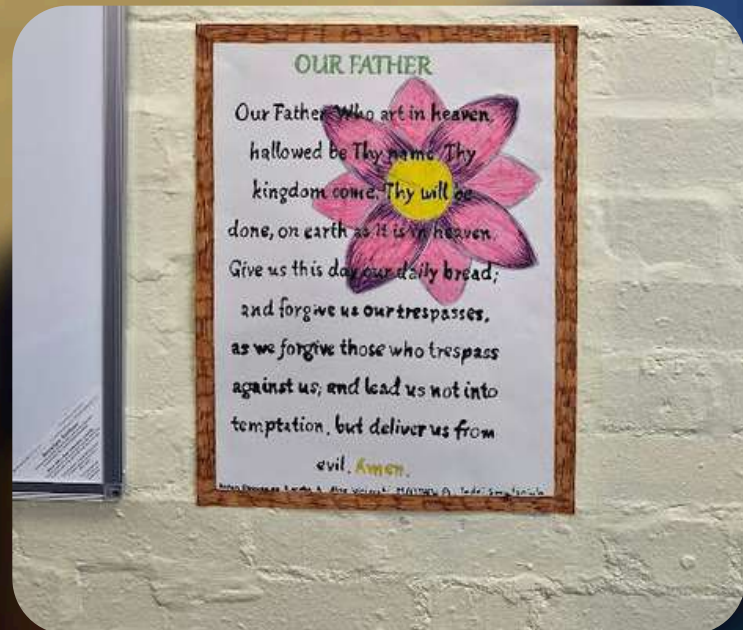 OUR FATHER
Our Father Who art in heaven,
hallowed be Thy name. Thy
kingdom come. Thy will be
done, on earth as it is in heaven.
Give us this day our daily bread;
and forgive us our trespasses,
as we forgive those who trespass
against us; and lead us not into
temptation, but deliver us from
evil. Amen.